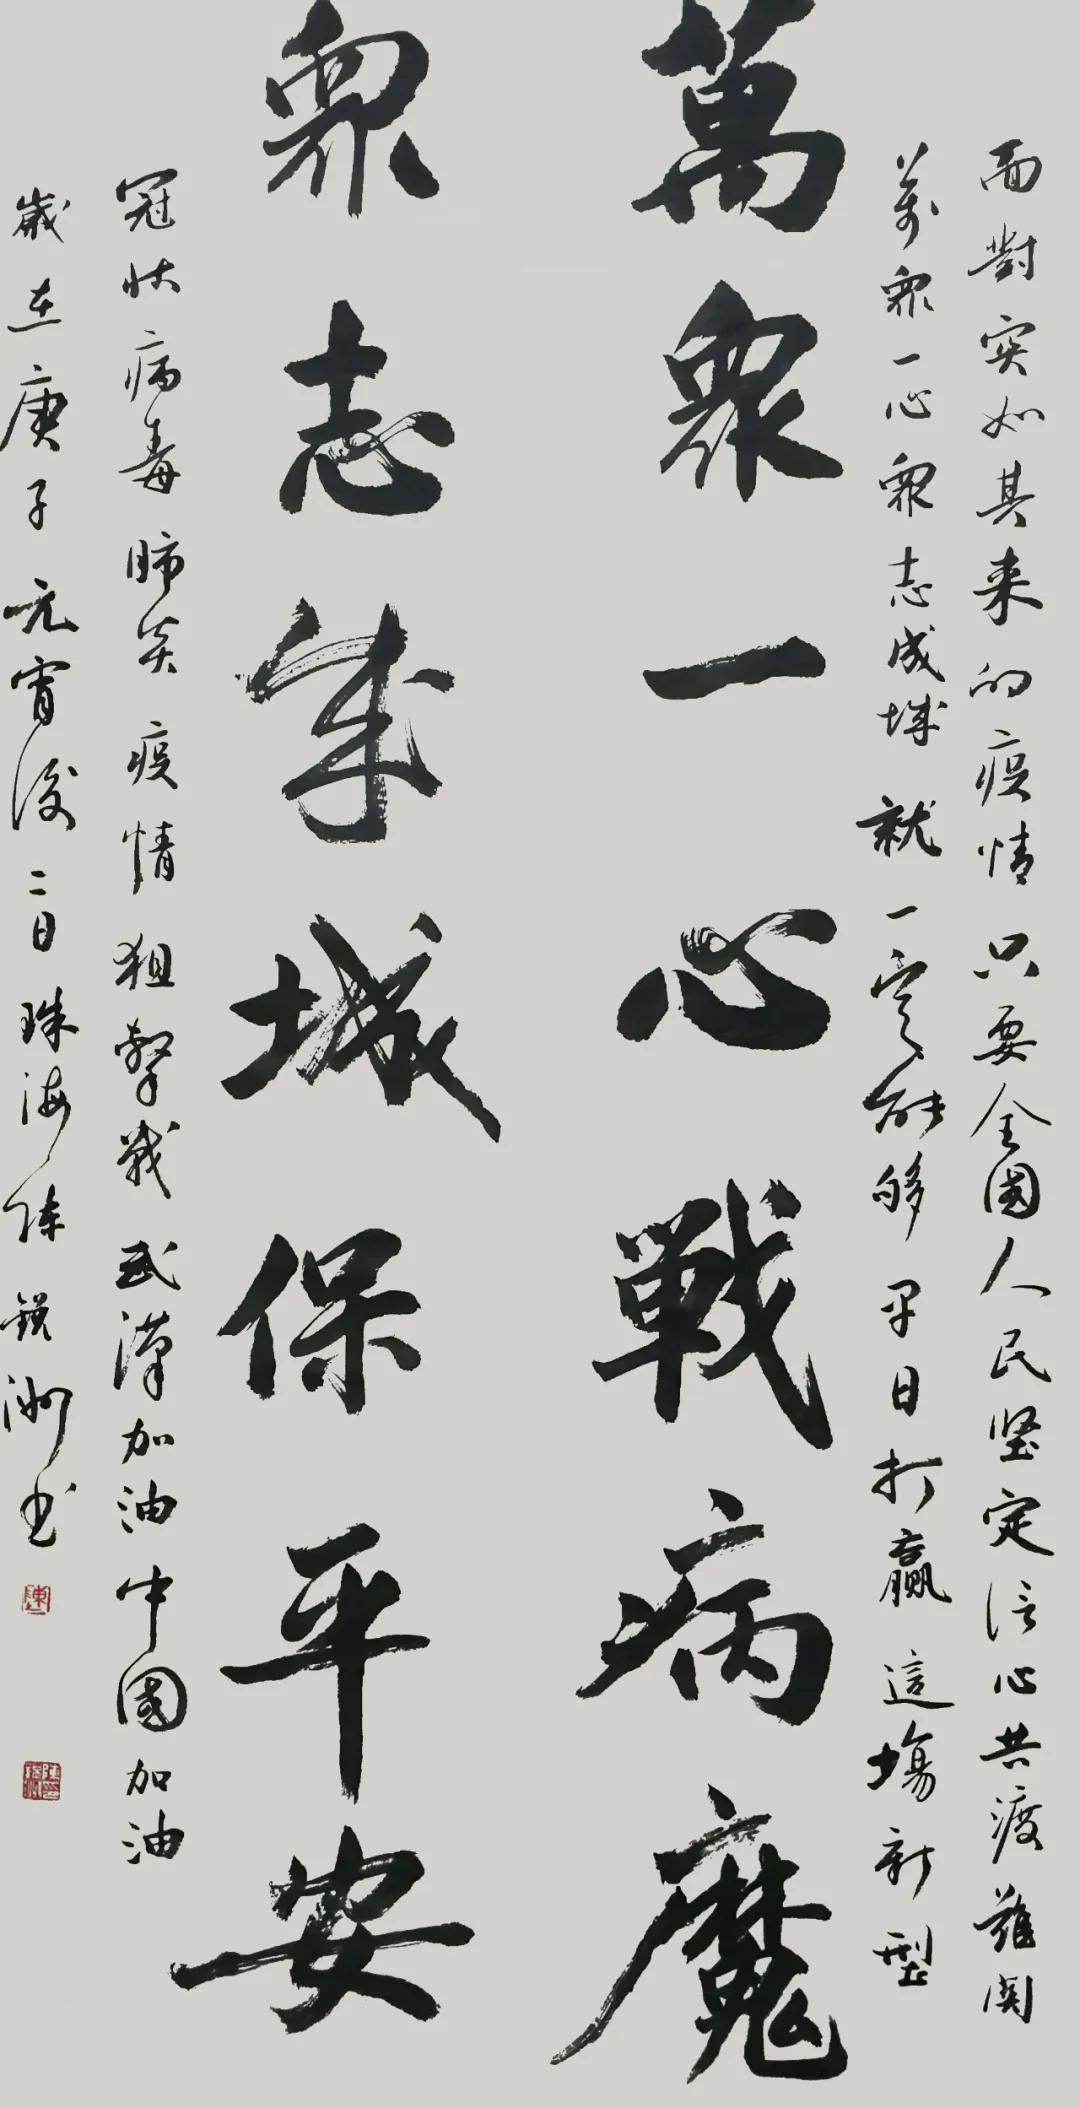 面對突如其来的疫情只要全國人民坚定信心共渡難関
萬衆一心衆志成城就一定能够早日打贏這場新型
萬衆一心戰病魔
衆志成城保平安
冠状病毒肺炎疫情狙擊戰武漢加油中國加油
歲在庚子元宵後二日珠海陳锐洲书